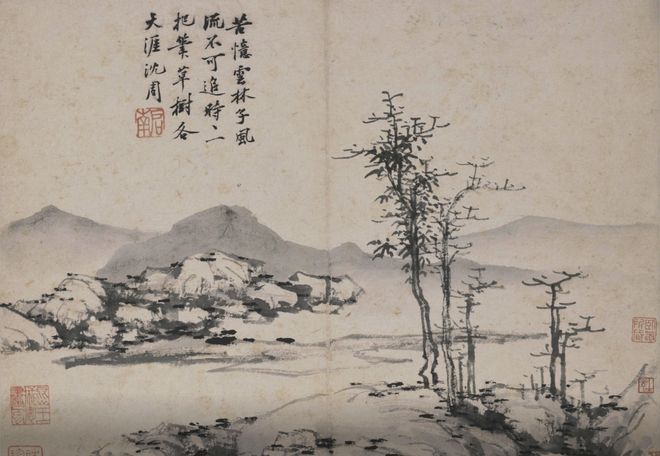 苦憶雲林子風
流不可追時〻
把筆草樹各
天涯沈周
啓南